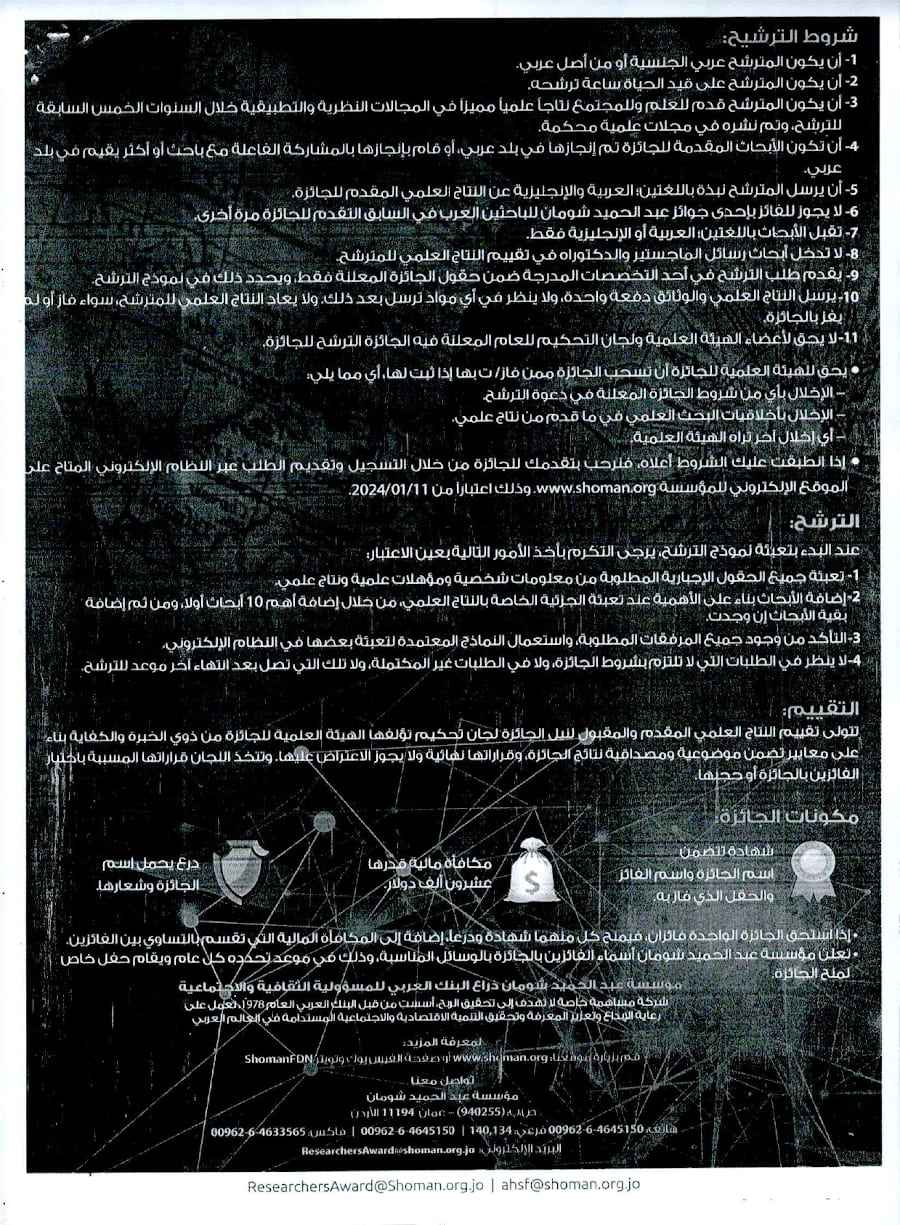 شروط الترشيح:
1- أن يكون المترشح عربي الجنسية أو من أصل عربي.
2- أن يكون المترشح على قيد الحياة ساعة ترشحه.
3- أن يكون المترشح قدم للعلم وللمجتمع نتاجاً علمياً مميزاً في المجالات النظرية والتطبيقية خلال السنوات الخمس السابقة
للترشح، وتم نشره في مجلات علمية محكمة.
4- أن تكون الأبحاث المقدمة للجائزة تم إنجازها في بلد عربي، أو قام بإنجازها بالمشاركة الفاعلة مع باحث أو أكثر يقيم في بلد
عربي.
5- أن يرسل المترشح نبذة باللغتين؛ العربية والإنجليزية عن النتاج العلمي المقدم للجائزة.
6- لا يجوز للفائز بإحدى جوائز عبد الحميد شومان للباحثين العرب في السابق التقدم للجائزة مرة أخرى.
7- تقبل الأبحاث باللغتين؛ العربية أو الإنجليزية فقط.
8- لا تدخل أبحاث رسائل الماجستير والدكتوراه في تقييم النتاج العلمي للمترشح.
9- يقدم طلب الترشح في أحد التخصصات المدرجة ضمن حقول الجائزة المعلنة فقط، ويحدد ذلك في نموذج الترشح.
10- يرسل النتاج العلمي والوثائق دفعة واحدة، ولا ينظر في أي مواد ترسل بعد ذلك، ولا يعاد النتاج العلمي للمترشح، سواء فاز أو لم
يفز بالجائزة.
11- لا يحق لأعضاء الهيئة العلمية ولجان التحكيم للعام المعلنة فيه الجائزة الترشح للجائزة.
• يحق للهيئة العلمية للجائزة أن تسحب الجائزة ممن فاز/ت بها إذا ثبت لها، أي مما يلي:
– الإخلال بأي من شروط الجائزة المعلنة في دعوة الترشح.
– الإخلال بأخلاقيات البحث العلمي في ما قدم من نتاج علمي.
– أي إخلال آخر تراه الهيئة العلمية.
• إذا انطبقت عليك الشروط أعلاه، فنرحب بتقدمك للجائزة من خلال التسجيل وتقديم الطلب عبر النظام الإلكتروني المتاح على
الموقع الإلكتروني للمؤسسة www.shoman.org. وذلك اعتباراً من 2024/01/11.
الترشح:
عند البدء بتعبئة نموذج الترشح، يرجى التكرم بأخذ الأمور التالية بعين الاعتبار:
1- تعبئة جميع الحقول الإجبارية المطلوبة من معلومات شخصية ومؤهلات علمية ونتاج علمي.
2- إضافة الأبحاث بناء على الأهمية عند تعبئة الجزئية الخاصة بالنتاج العلمي، من خلال إضافة أهم 10 أبحاث أولا، ومن ثم إضافة
بقية الأبحاث إن وجدت.
3- التأكد من وجود جميع المرفقات المطلوبة، واستعمال النماذج المعتمدة لتعبئة بعضها في النظام الإلكتروني.
4- لا ينظر في الطلبات التي لا تلتزم بشروط الجائزة، ولا في الطلبات غير المكتملة، ولا تلك التي تصل بعد انتهاء آخر موعد للترشح.
التقييم:
تتولى تقييم النتاج العلمي المقدم والمقبول لنيل الجائزة لجان تحكيم تؤلفها الهيئة العلمية للجائزة من ذوي الخبرة والكفاية بناء
على معايير تضمن موضوعية ومصداقية نتائج الجائزة، وقراراتها نهائية ولا يجوز الاعتراض عليها. وتتخذ اللجان قراراتها المسببة باختيار
الفائزين بالجائزة أو حجبها.
مكونات الجائزة:
شهادة تتضمن
اسم الجائزة واسم الفائز
والحقل الذي فاز به.
مكافأة مالية قدرها
عشرون ألف دولار.
درع يحمل اسم
الجائزة وشعارها.
• إذا استحق الجائزة الواحدة فائزان، فيمنح كل منهما شهادة ودرعاً، إضافة إلى المكافأة المالية التي تقسم بالتساوي بين الفائزين.
• تعلن مؤسسة عبد الحميد شومان أسماء الفائزين بالجائزة بالوسائل المناسبة، وذلك في موعد تحدده كل عام ويقام حفل خاص
لمنح الجائزة.
مؤسسة عبد الحميد شومان ذراع البنك العربي للمسؤولية الثقافية والاجتماعية
شركة مساهمة خاصة لا تهدف إلى تحقيق الربح، أسست من قبل البنك العربي العام 1978، تعمل على
رعاية الإبداع وتعزيز المعرفة وتحقيق التنمية الاقتصادية والاجتماعية المستدامة في العالم العربي
لمعرفة المزيد:
قم بزيارة موقعنا: www.shoman.org أو صفحة الفيس بوك وتويتر ShomanFDN
تواصل معنا
مؤسسة عبد الحميد شومان
ص.ب: (940255) – عمان 11194 الأردن
هاتف: 00962-6-4645150 فرعي: 140,134 | 00962-6-4645150 | فاكس: 00962-6-4633565
البريد الإلكتروني: ResearchersAward@shoman.org.jo
ResearchersAward@Shoman.org.jo | ahsf@shoman.org.jo